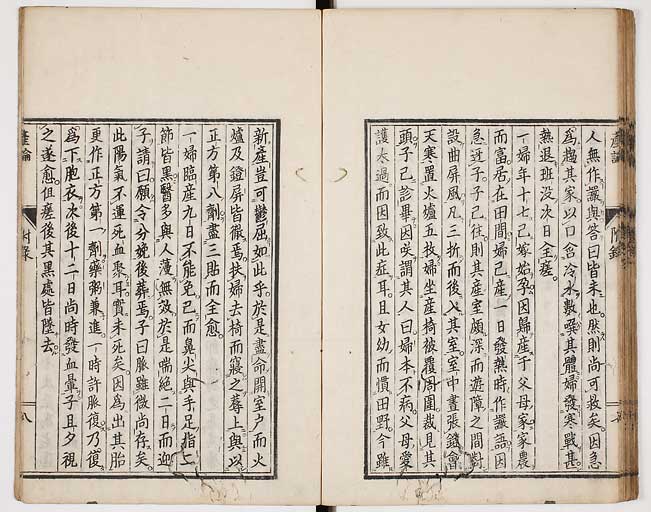 人無作譫與答曰皆未也然則尚可救矣因急
爲趨其家以口含冷水數噀其體婦發寒戰甚
熱退班没次日全瘥
一婦年十七已嫁始孕因歸產于父母家家農
而富居在田間婦已產一日發熱時作譫語因
急迎子子已往則其産室頗深而遊障之間對
設曲屏風凡三折而後入其室室中晝張燈會
天寒置火爐五枚婦坐產椅彼覆周圍裁見其
頭子已診畢因咲謂其人曰婦本不病父母愛
護太過而因致此症耳且女幼而慣田野今雖
産論
附錄
新産豈可鬱屈如此乎於是盡命開室户而火
爐及鐙屏皆徹焉扶婦去椅而寢之蓐上與以
正方第八劑盡三貼而全愈
一婦臨產九日不能免已而鼻尖與手足指二
節皆黑醫多與人薓無效於是喘絕二日而迎
子請曰願令分娩後葬焉子曰脈雖微尚存矣
此陽氣不運死血聚耳實未死矣因爲出其胎
更作正方第一劑藥粥兼進一時許脈復乃復
爲下胞衣次後十二日尚時發血暈子旦夕視
之遂愈但瘥後其黑處皆墮去
産論
附錄
八